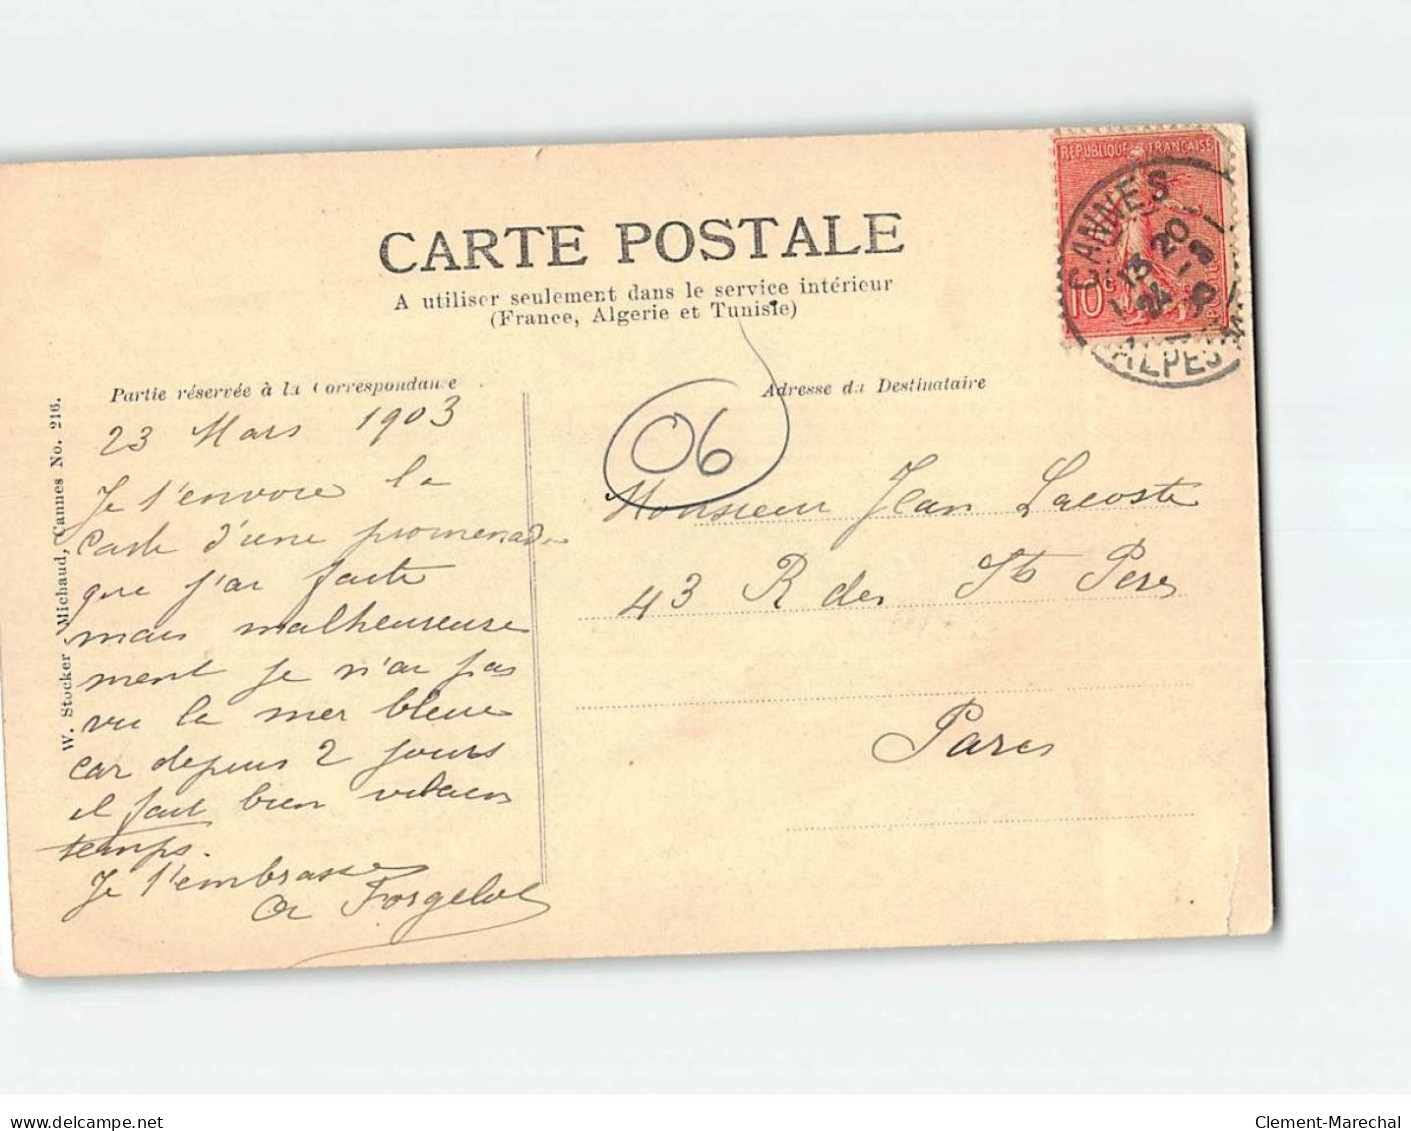 CARTE POSTALE
A utiliser seulement dans le service intérieur
(France, Algerie et Tunisie)
Partie réservée à la Correspondance
Adresse du Destinataire
W. Stocker Michaud, Cannes No. 216.
REPUBLIQUE FRANÇAISE
10 c
CANNES
13 20
24
ALPES
06
23 Mars 1903
Je t'envoie la
carte d'une promenade
que j'ai faite
mais malheureuse
ment je n'ai pas
vu la mer bleue
car depuis 2 jours
il fait bien vilain
temps.
Je t'embrasse
Monsieur Jean Lacoste
43 R des Sts Peres
Paris
delcampe.net
Clement-Marechal